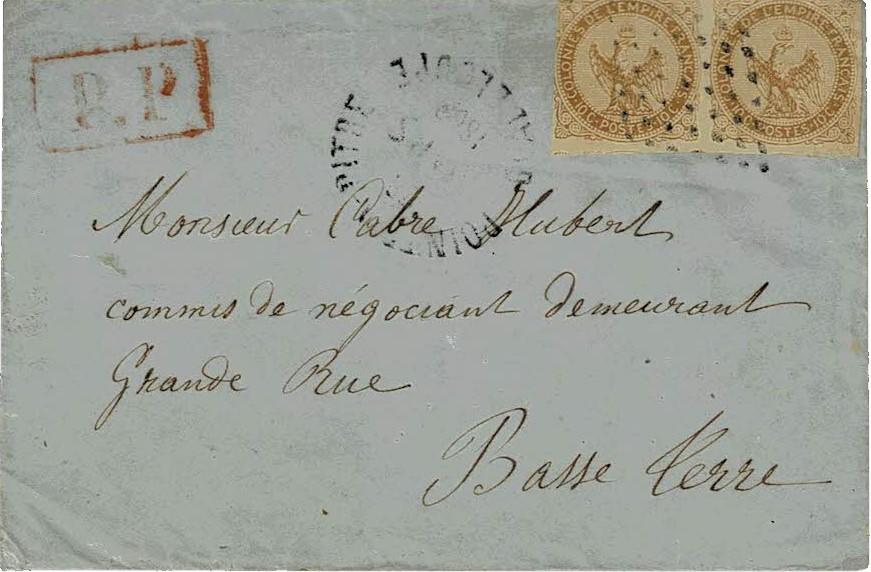 P.P
COLONIES DE L'EMPIRE FRANÇAIS
10 C. POSTES 10 C.
COLONIES DE L'EMPIRE FRANÇAIS
10 C. POSTES 10 C.
GUADELOUPE
POINTE A PITRE
Monsieur Cabre Hubert
commis de négociant demeurant
Grande Rue
Basse Terre